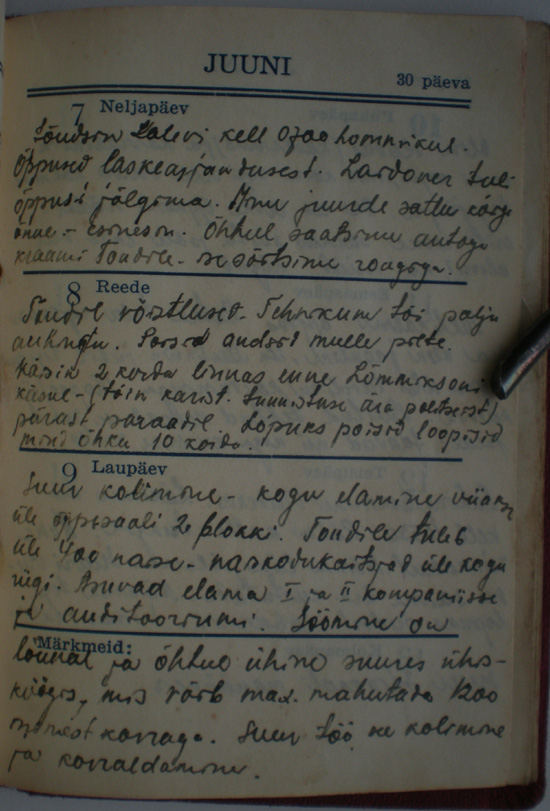 JUUNI
30 päeva
7 Neljapäev
Sõudsin Kalevi kell 0700 hommikul.
Õppused laskeasjandusest. Laidoner tuli
õppusi jälgima. Minu juurde sattus kõrge
onu - Õhtul saatsime autoga
kraami Tondile - ise sõitsime rongiga.
8 Reede
Tondil võistlused. Tehnikum sai palju
auhindu. andsid mulle
Käisin 2 korda linnas enne
käsul - (tõin ära politseist)
pärast paraadil. Lõpuks poisid loopisid
mind õhku 10 korda.
9 Laupäev
Suur kolimine - kogu elamine viiakse
üle õppesaali 2 blokki. Tondile tuleb
üle 400 naise - naiskodukaitsjad üle kogu
riigi. Asuvad elama I ja II kompaniisse
ja auditooriumi. Söömine on
Märkmeid:
lõunal ja õhtul ühine suures ühis-
köögis, mis võib max. mahutada 1200
inimest korraga. Suur töö see kolimine
ja korraldamine.